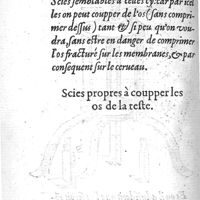 Scies semblables à celles cy, car par icel
les on peut coupper de l'os (sans compri-
mer dessus) tant & si peu qu'on vou
dra, sans estre en danger de comprimer
l'os fracturé sur les membranes, & par
consequent sur le cerueau.
Scies propres à coupper les
os de la teste.